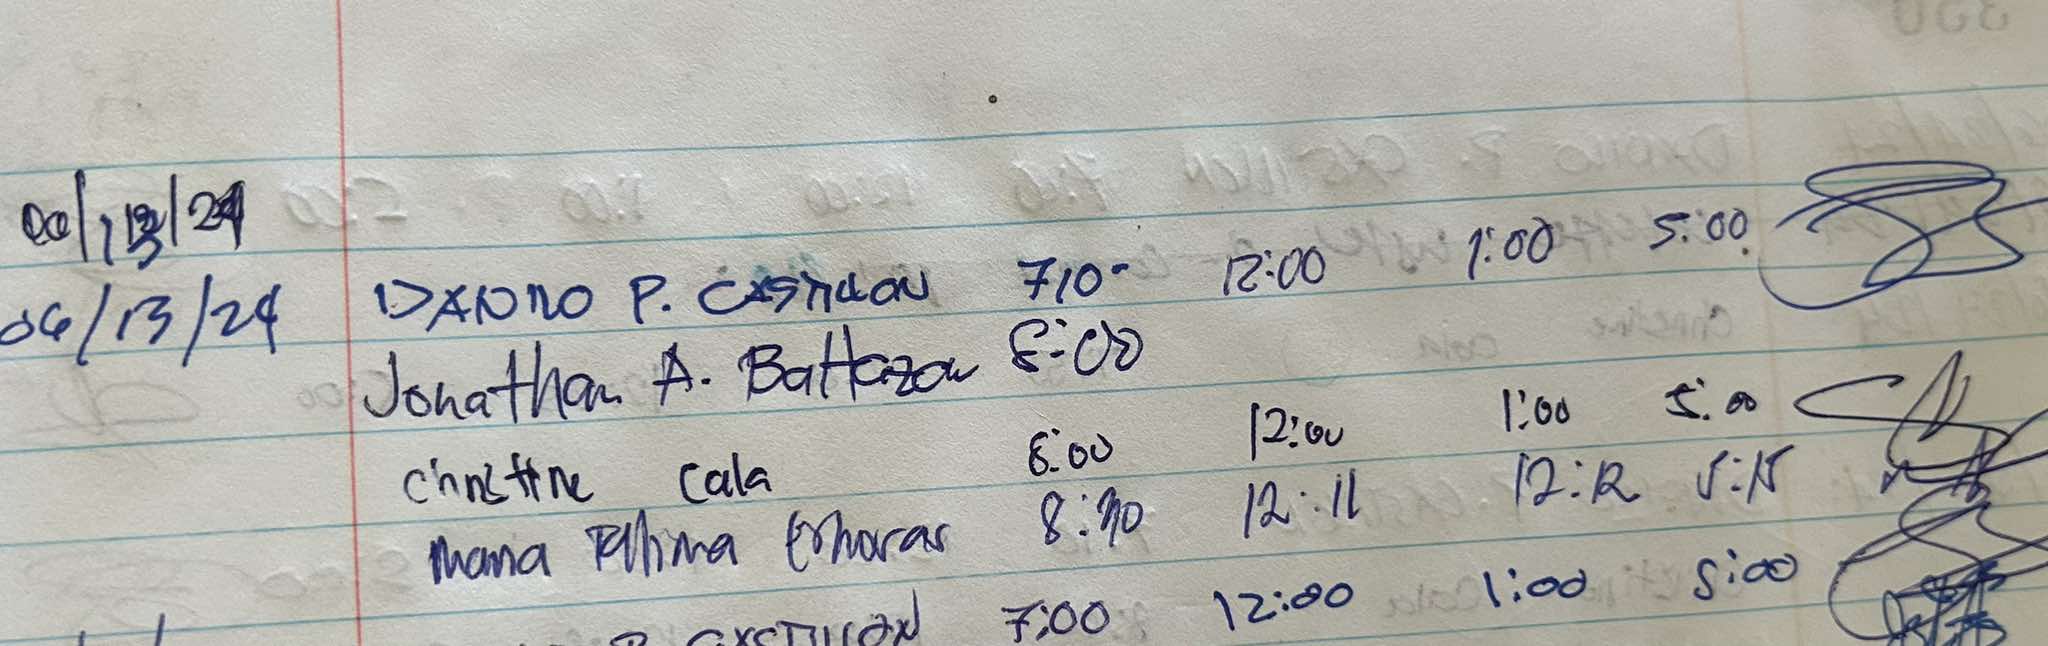 06/13/24
06/13/24 DANILO P. CASTILLON 710- 12:00 1:00 5:00
Jonathan A. Baltazar 8:00
Christine Cala 8:00 12:00 1:00 5:00
Maria Fatima 8:30 12:11 12:12 5:15
P. CASTILLON 7:00 12:00 1:00 5:00